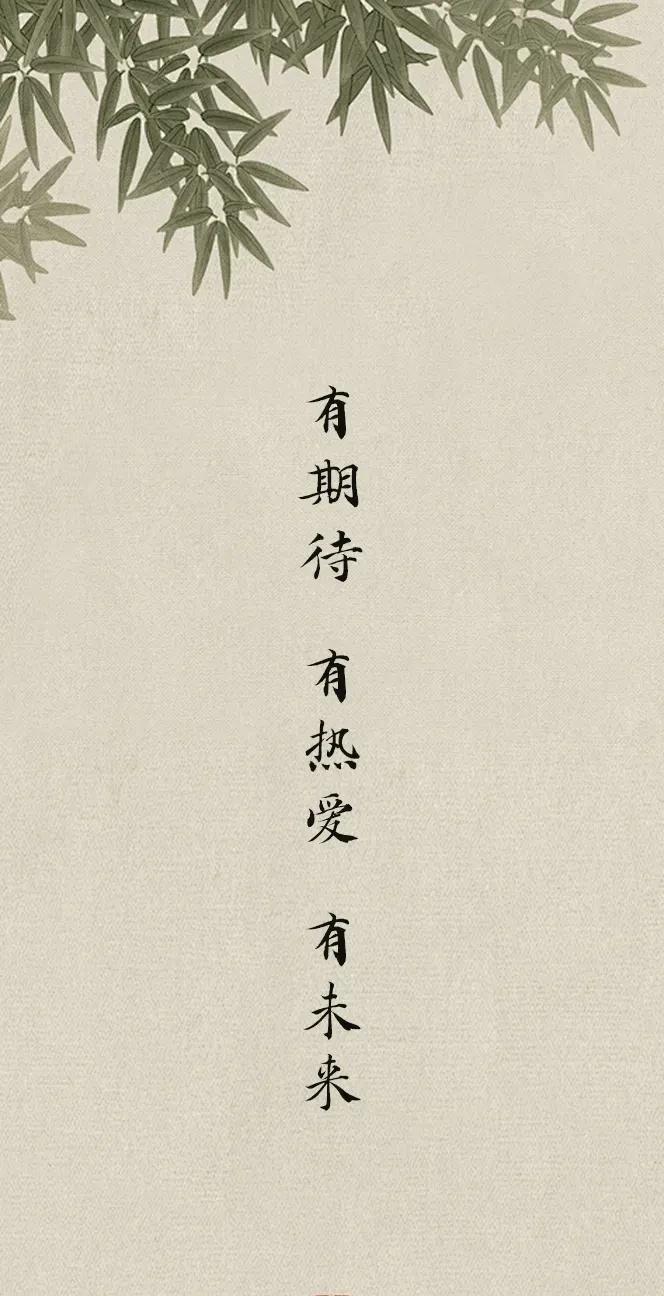 有期待 有热爱 有未来